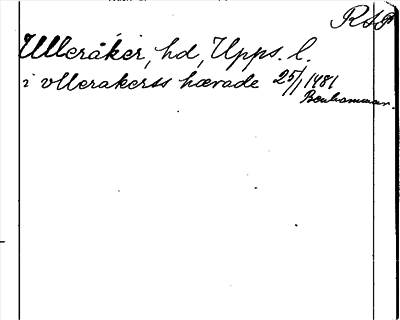 RSP
Ulleråker, hd, Upps. l.
i vllerakerss hærade 25/1 1481
Benhammar.